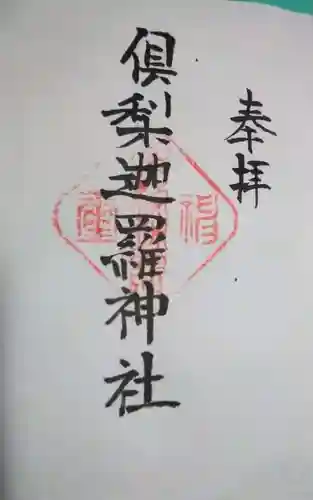 奉拝
倶梨迦羅神社